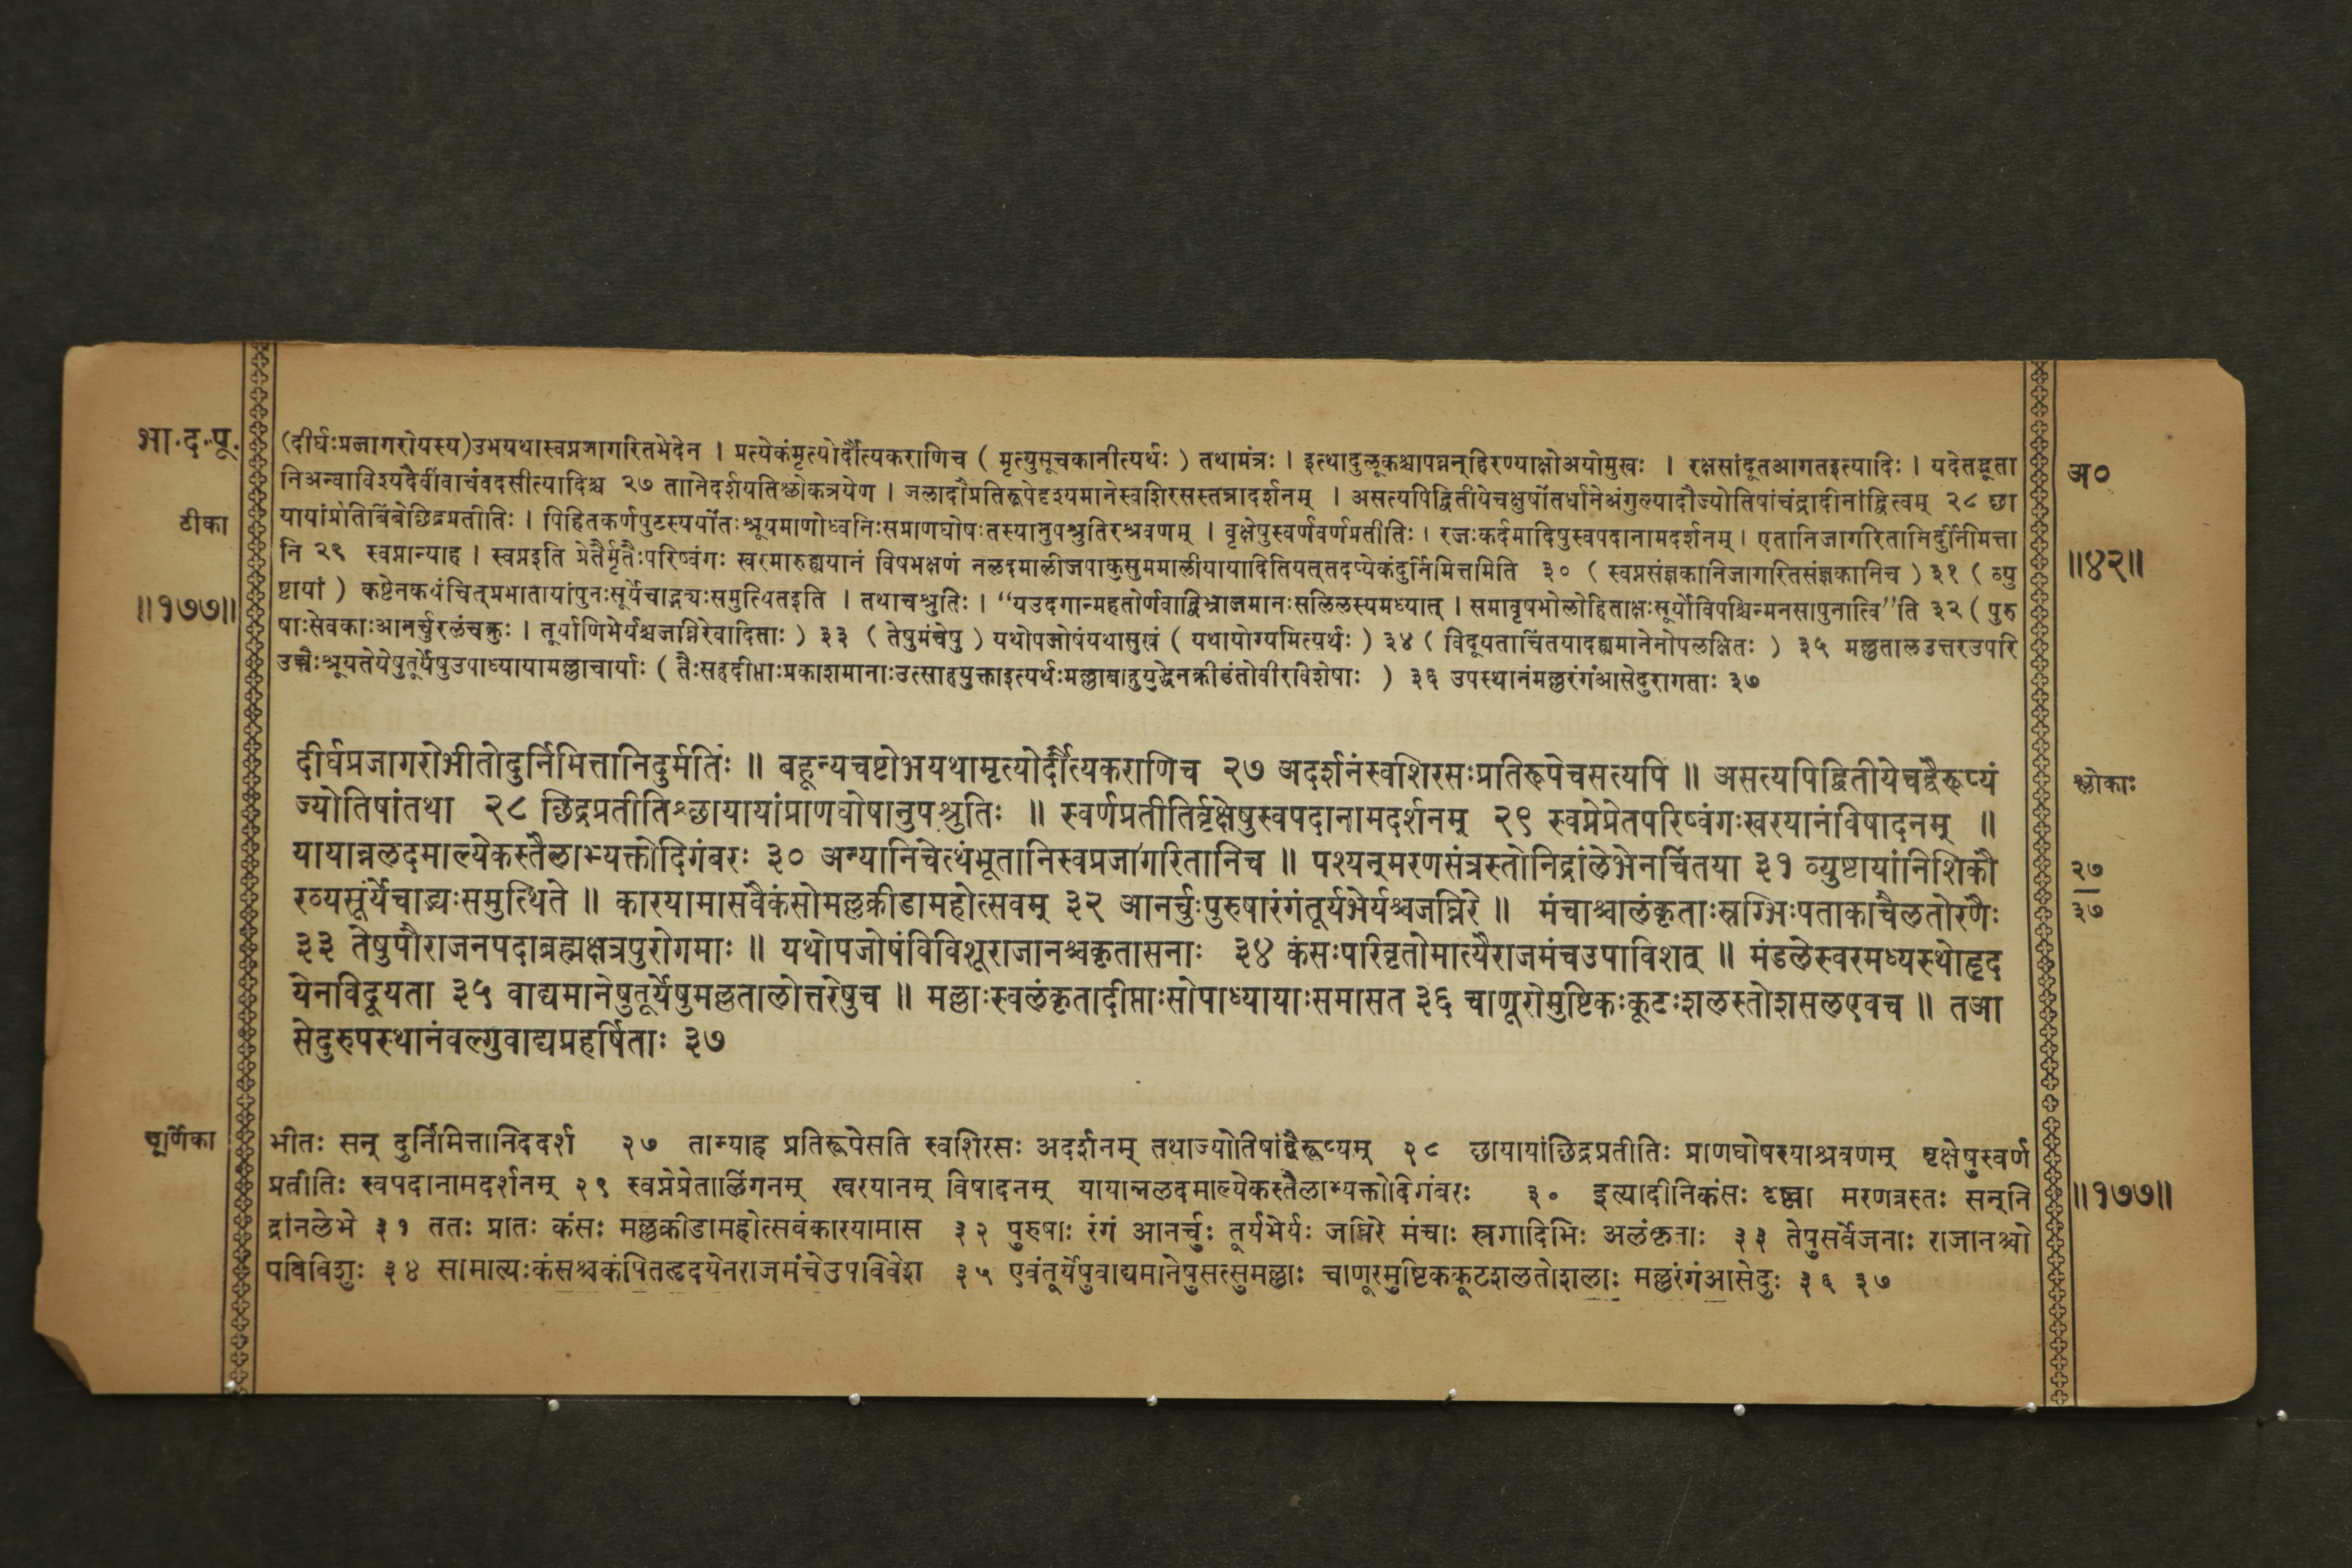 भा.द.पू.
टीका
॥१७७॥
(दीर्घःप्रजागरोयस्य)उभयथास्वप्नजागरितभेदेन । प्रत्येकंमृत्योर्दौत्यकराणिच ( मृत्युसूचकानीत्यर्थः ) तथामंत्रः । इत्थादुलूकश्चापप्तन्हिरण्याक्षोअयोमुखः । रक्षसांदूतआगतइत्यादिः । यदेतद्भूता
निअन्वाविश्यदैवींवाचंवदसीत्यादिश्च २७ तानिदर्शयतिश्लोकत्रयेण । जलादौप्रतिरूपेदृश्यमानेस्वशिरसस्तत्रादर्शनम् । असत्यपिद्वितीयेचक्षुषोंतर्धानेअंगुल्यादौज्योतिषांचंद्रादीनांद्वित्वम् २८ छा
यायांप्रतिबिंबेछिद्रप्रतीतिः । पिहितकर्णपुटस्ययोंतःश्रूयमाणोध्वनिःसप्राणघोषःतस्यानुपश्रुतिरश्रवणम् । वृक्षेषुस्वर्णवर्णप्रतीतिः । रजःकर्दमादिषुस्वपदानामदर्शनम् । एतानिजागरितानिदुर्निमित्ता
नि २९ स्वप्नान्याह । स्वप्नइति प्रेतैर्मृतैःपरिष्वंगः खरमारुह्ययानं विषभक्षणं नलदमालीजपाकुसुममालीयायादितियत्तदप्येकंदुर्निमित्तमिति ३० ( स्वप्नसंज्ञकानिजागरितसंज्ञकानिच ) ३१ ( व्यु
ष्टायां ) कष्टेनकथंचित्प्रभातायांपुनःसूर्येचाद्भ्यःसमुत्थितइति । तथाचश्रुतिः । “यउदगान्महतोर्णवाद्विभ्राजमानःसलिलस्यमध्यात् । समावृषभोलोहिताक्षःसूर्योविपश्चिन्मनसापुनात्वि”ति ३२ ( पुरु
षाःसेवकाःआनर्चुरलंचक्रुः । तूर्याणिभेर्यश्चजघ्निरेवादिताः ) ३३ ( तेषुमंचेषु ) यथोपजोषंयथासुखं ( यथायोग्यमित्यर्थः ) ३४ ( विदूयताचिंतयादह्यमानेनोपलक्षितः ) ३५ मल्लतालउत्तरउपरि
उच्चैःश्रूयतेयेषुतूर्येषुउपाध्यायामल्लाचार्याः ( तैःसहदीप्ताःप्रकाशमानाःउत्साहयुक्ताइत्यर्थःमल्लाबाहुयुद्धेनक्रीडंतोवीरविशेषाः ) ३६ उपस्थानंमल्लरंगंआसेदुरागताः ३७
अ०
॥४२॥
दीर्घप्रजागरोभीतोदुर्निमित्तानिदुर्मतिः ॥ बहून्यचष्टोभयथामृत्योर्दौत्यकराणिच २७ अदर्शनंस्वशिरसःप्रतिरूपेचसत्यपि ॥ असत्यपिद्वितीयेचद्वैरूप्यं
ज्योतिषांतथा २८ छिद्रप्रतीतिश्छायायांप्राणघोषानुपश्रुतिः ॥ स्वर्णप्रतीतिर्वृक्षेषुस्वपदानामदर्शनम् २९ स्वप्नेप्रेतपरिष्वंगःखरयानंविषादनम् ॥
यायान्नलदमाल्येकस्तैलाभ्यक्तोदिगंबरः ३० अन्यानिचेत्थंभूतानिस्वप्नजागरितानिच ॥ पश्यन्मरणसंत्रस्तोनिद्रांलेभेनचिंतया ३१ व्युष्टायांनिशिकौ
रव्यसूर्येचाद्भ्यःसमुत्थिते ॥ कारयामासवैकंसोमल्लक्रीडामहोत्सवम् ३२ आनर्चुःपुरुषारंगंतूर्यभेर्यश्चजघ्निरे ॥ मंचाश्चालंकृताःस्रग्भिःपताकाचैलतोरणैः
३३ तेषुपौराजनपदाब्रह्मक्षत्रपुरोगमाः ॥ यथोपजोषंविविशूराजानश्चकृतासनाः ३४ कंसःपरिवृतोमात्यैराजमंचउपाविशत् ॥ मंडलेस्वरमध्यस्थोहृद
येनविदूयता ३५ वाद्यमानेषुतूर्येषुमल्लतालोत्तरेषुच ॥ मल्लाःस्वलंकृतादीप्ताःसोपाध्यायाःसमासत ३६ चाणूरोमुष्टिकःकूटःशलस्तोशलएवच ॥ तआ
सेदुरुपस्थानंवल्गुवाद्यप्रहर्षिताः ३७
श्लोकाः
२७
३७
चूर्णिका
भीतः सन् दुर्निमित्तानिददर्श २७ तान्याह प्रतिरूपेसति स्वशिरसः अदर्शनम् तथाज्योतिषांद्वैरूप्यम् २८ छायायांछिद्रप्रतीतिः प्राणघोषस्याश्रवणम् वृक्षेषुस्वर्ण
प्रतीतिः स्वपदानामदर्शनम् २९ स्वप्नेप्रेतालिंगनम् खरयानम् विषादनम् यायान्नलदमाल्येकस्तैलाभ्यक्तोदिगंबरः ३० इत्यादीनिकंसः दृष्ट्वा मरणत्रस्तः सन्नि
द्रांनलेभे ३१ ततः प्रातः कंसः मल्लक्रीडामहोत्सवंकारयामास ३२ पुरुषाः रंगं आनर्चुः तूर्यभेर्यः जघ्निरे मंचाः स्रगादिभिः अलंकृताः ३३ तेषुसर्वेजनाः राजानश्चो
पविविशुः ३४ सामात्यःकंसश्चकंपितहृदयेनराजमंचेउपविवेश ३५ एवंतूर्येषुवाद्यमानेषुसत्सुमल्लाः चाणूरमुष्टिककूटशलतोशलाः मल्लरंगंआसेदुः ३६ ३७
॥१७७॥